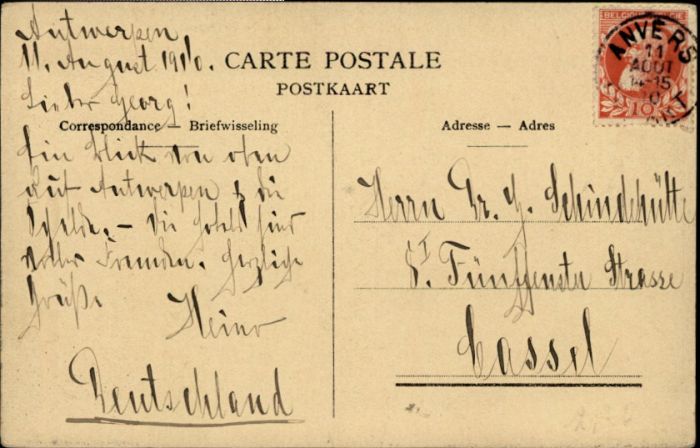 Antwerpen,
11. August 1910.
Lieber Georg!
CARTE POSTALE
POSTKAART
Correspondance — Briefwisseling
Ein Blick von oben
auf Antwerpen & die
Schelde. — Die Hotels sind
voller Fremden. Herzliche
Grüße
Heino
Deutschland
BELGIQUE BELGIË
10
ANVERS
11
AOUT
14-15
Adresse — Adres
Herrn Dr. G. Schindehütte
Fünffenster Strasse
Cassel